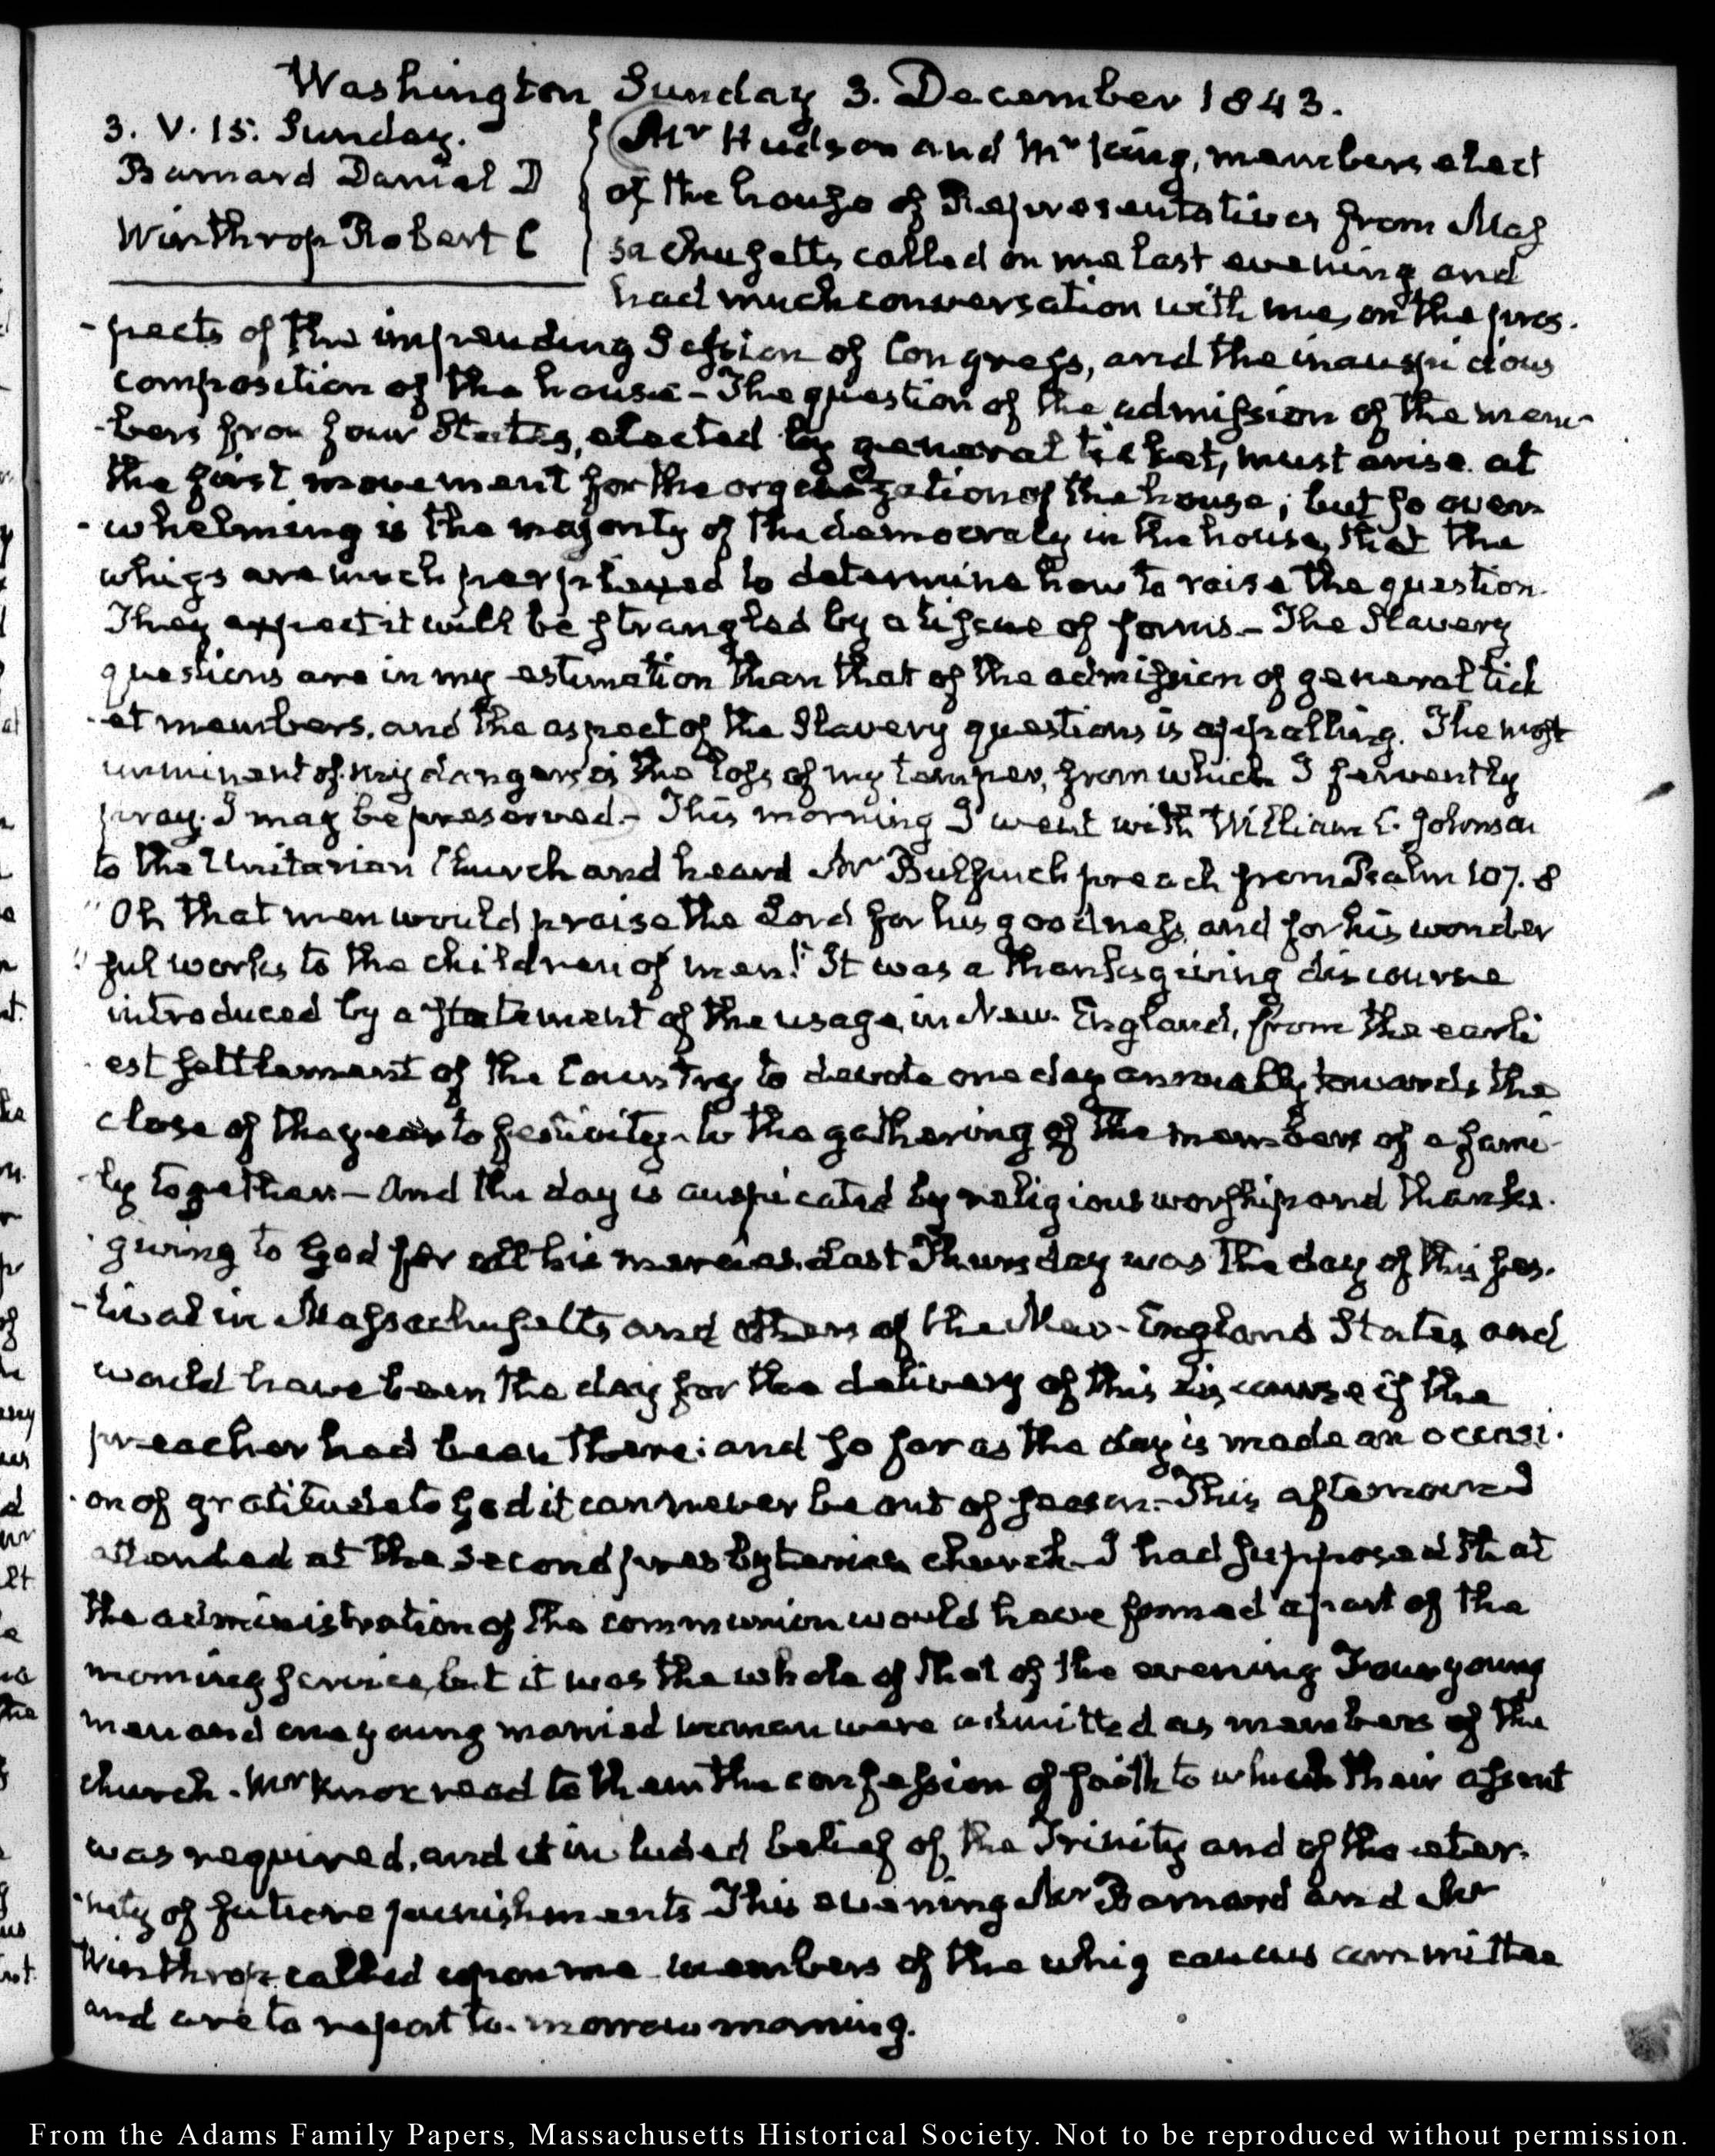 Washington Sunday 3. December 1843.
3. V. 15. Sunday.
Barnard Daniel D
Winthrop Robert C
Mr Hudson and Mr King, members elect
of the house of Representatives from Mas
sachusetts called on me last evening and
had much conversation with me, on the pros-
-pects of the impending Session of Congress, and the inauspicious
composition of the house - The question of the admission of the mem-
-bers from four States, elected by general ticket, must arise at
the first movement for the organization of the house; but so over-
-whelming is the majority of the democracy in the house, that the
whigs are much perplexed to determine how to raise the question.
They expect it will be strangled by a tissue of forms - The Slavery
questions are in my estimation than that of the admission of general tick
-et members, and the aspect of the Slavery questions is appalling. The most
imminent of my dangers is the loss of my temper, from which I fervently
pray I may be preserved - This morning I went with William C. Johnson
to the Unitarian Church and heard Mr Bulfinch preach from Psalm 107. 8
"Oh that men would praise the Lord for his goodness, and for his wonder
"ful works to the children of men!" It was a thanksgiving discourse
introduced by a statement of the usage, in New England, from the earli
est settlement of the Country to devote one day annually towards the
close of the year to festivity - to the gathering of the members of a fami-
-ly together - And the day is auspicated by religious worship and thanks-
-giving to God for all his mercies. Last Thursday was the day of this fes-
-tival in Massachusetts and others of the New-England States, and
would have been the day for the delivery of this discourse if the
preacher had been there: and so far as the day is made an occasi-
-on of gratitude to God it can never be out of season - This afternoon I
attended at the second presbyterian church - I had supposed that
the administration of the communion would have formed a part of the
morning service, but it was the whole of that of the evening Four young
men and one young married woman were admitted as members of the
church. Mr Knox read to them the confession of faith to which their assent
was required, and it in luded belief of the Trinity and of the eter-
-nity of future punishments This evening Mr Barnard and Mr
Winthrop called upon me members of the whig caucus committee
and are to report to-morrow morning.
From the Adams Family Papers, Massachusetts Historical Society. Not to be reproduced without permission.